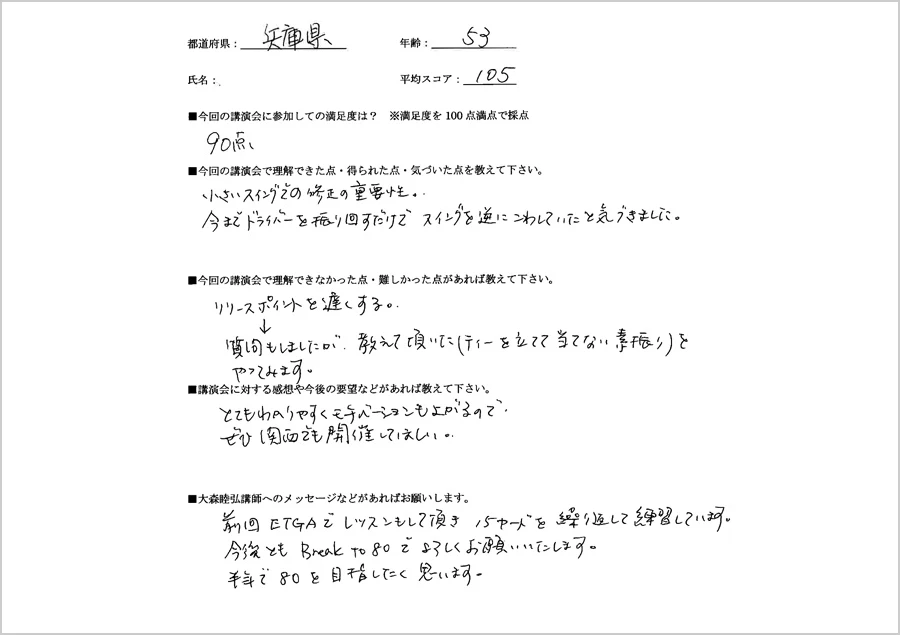 都道府県： 兵庫県 年齢： 53
氏名： 平均スコア： 105
■今回の講演会に参加しての満足度は？ ※満足度を100点満点で採点
90点
■今回の講演会で理解できた点・得られた点・気づいた点を教えて下さい。
小さいスイングでの修正の重要性。
今までドライバーを振り回すだけで スイングを逆にこわしていたと気づきました。
■今回の講演会で理解できなかった点・難しかった点があれば教えて下さい。
リリースポイントを遅くする。
↓
質問もしましたが、教えて頂いた(ティーを立てて当てない素振り)を
やってみます。
■講演会に対する感想や今後の要望などがあれば教えて下さい。
とてもわかりやすくモチベーションも上がるので、
ぜひ関西でも開催してほしい。
■大森睦弘講師へのメッセージなどがあればお願いします。
前回ETGAでレッスンもして頂き 15ヤードを繰り返して練習しています。
今後とも Break to 80 で よろしくお願いいたします。
半年で80を目指したく思います。